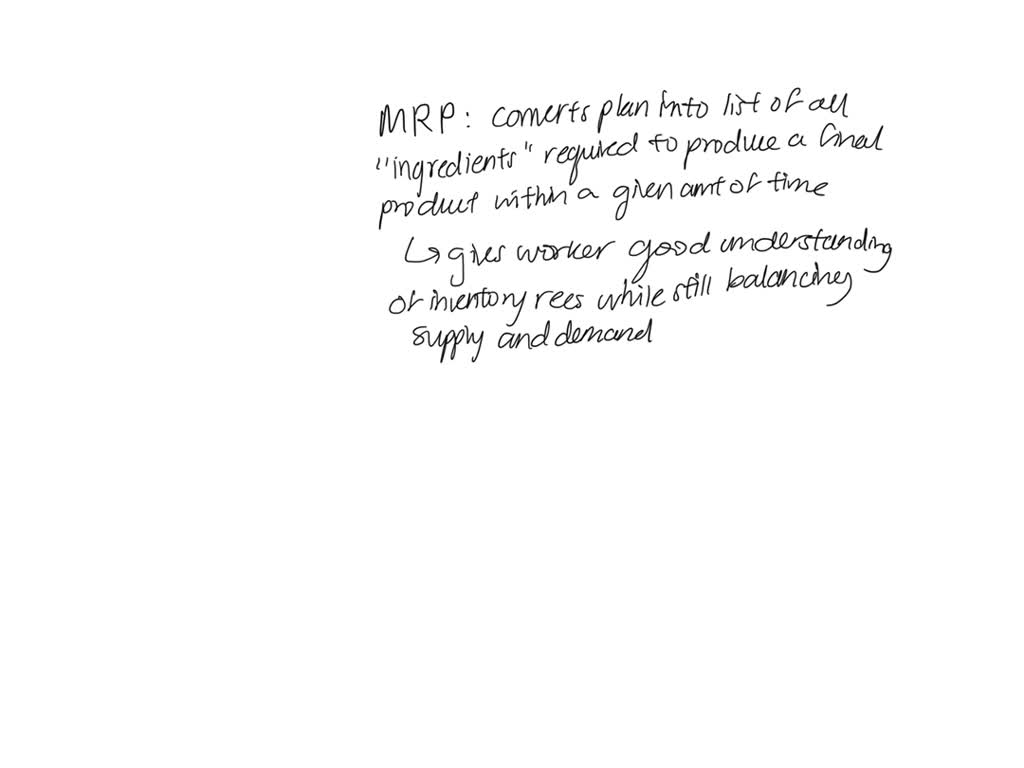 MRP: converts plan into list of all
"ingredients" required to produce a final
product within a given amt of time
↳ gives worker good understanding
of inventory recs while still balancing
supply and demand